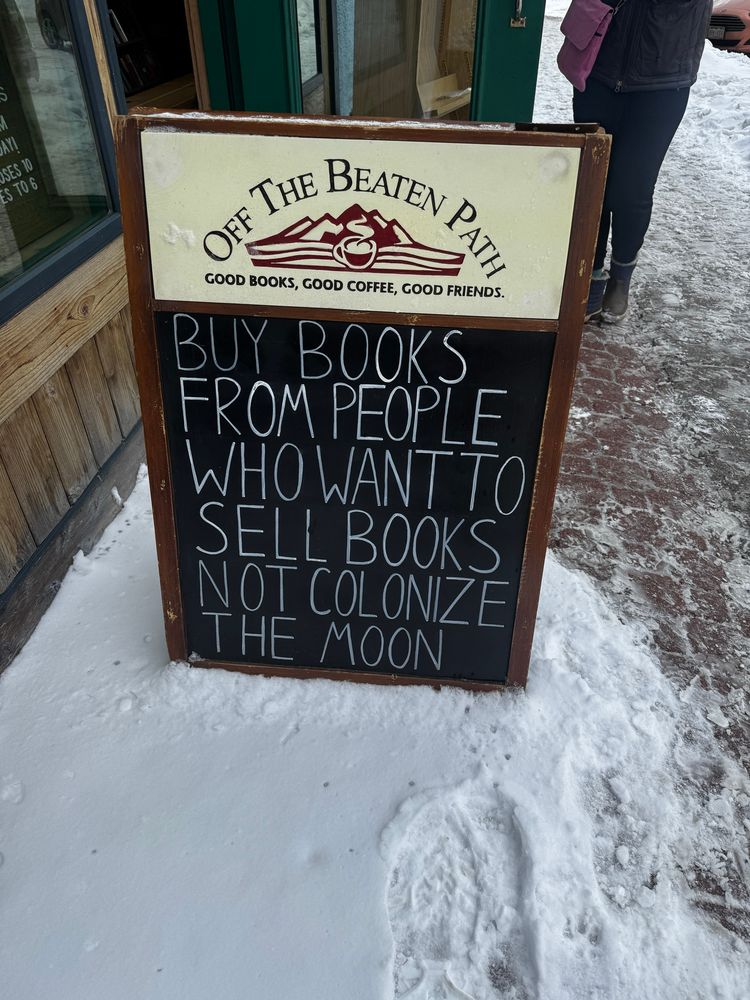 OFF THE BEATEN PATH
GOOD BOOKS, GOOD COFFEE, GOOD FRIENDS.
BUY BOOKS
FROM PEOPLE
WHO WANT TO
SELL BOOKS
NOT COLONIZE
THE MOON